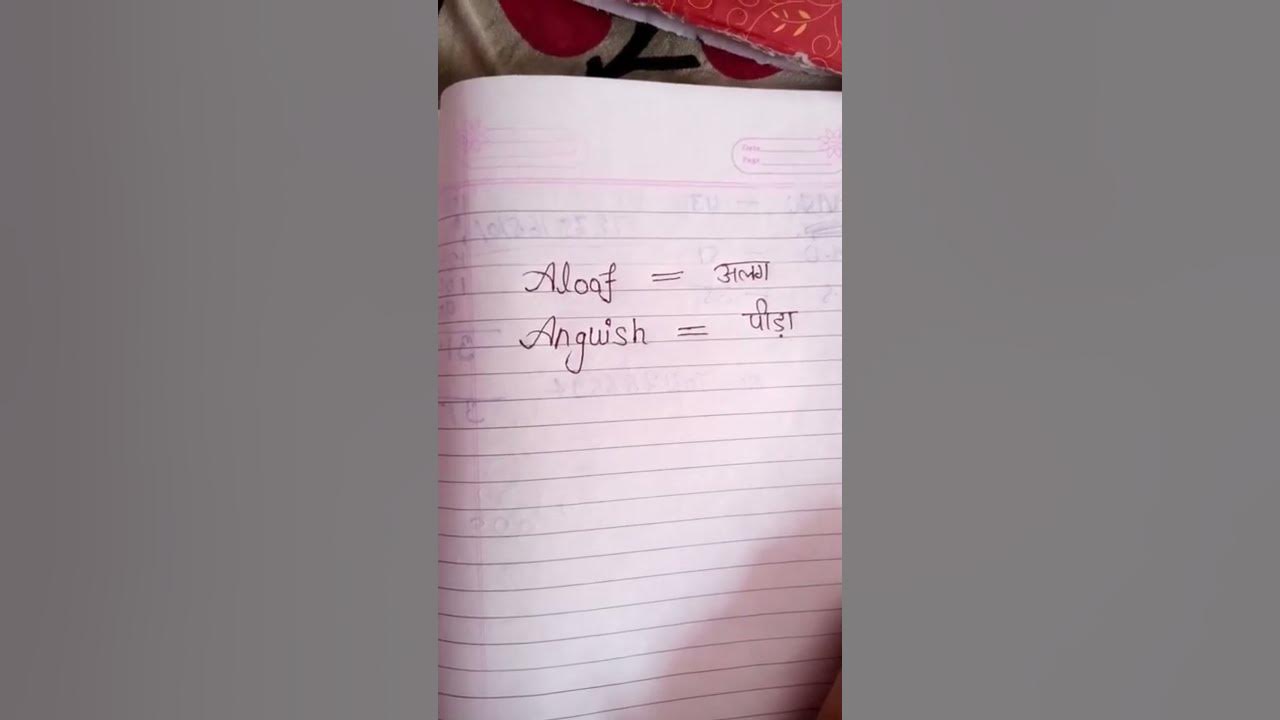 Date
Page
Aloof = अलग
Anguish = पीड़ा